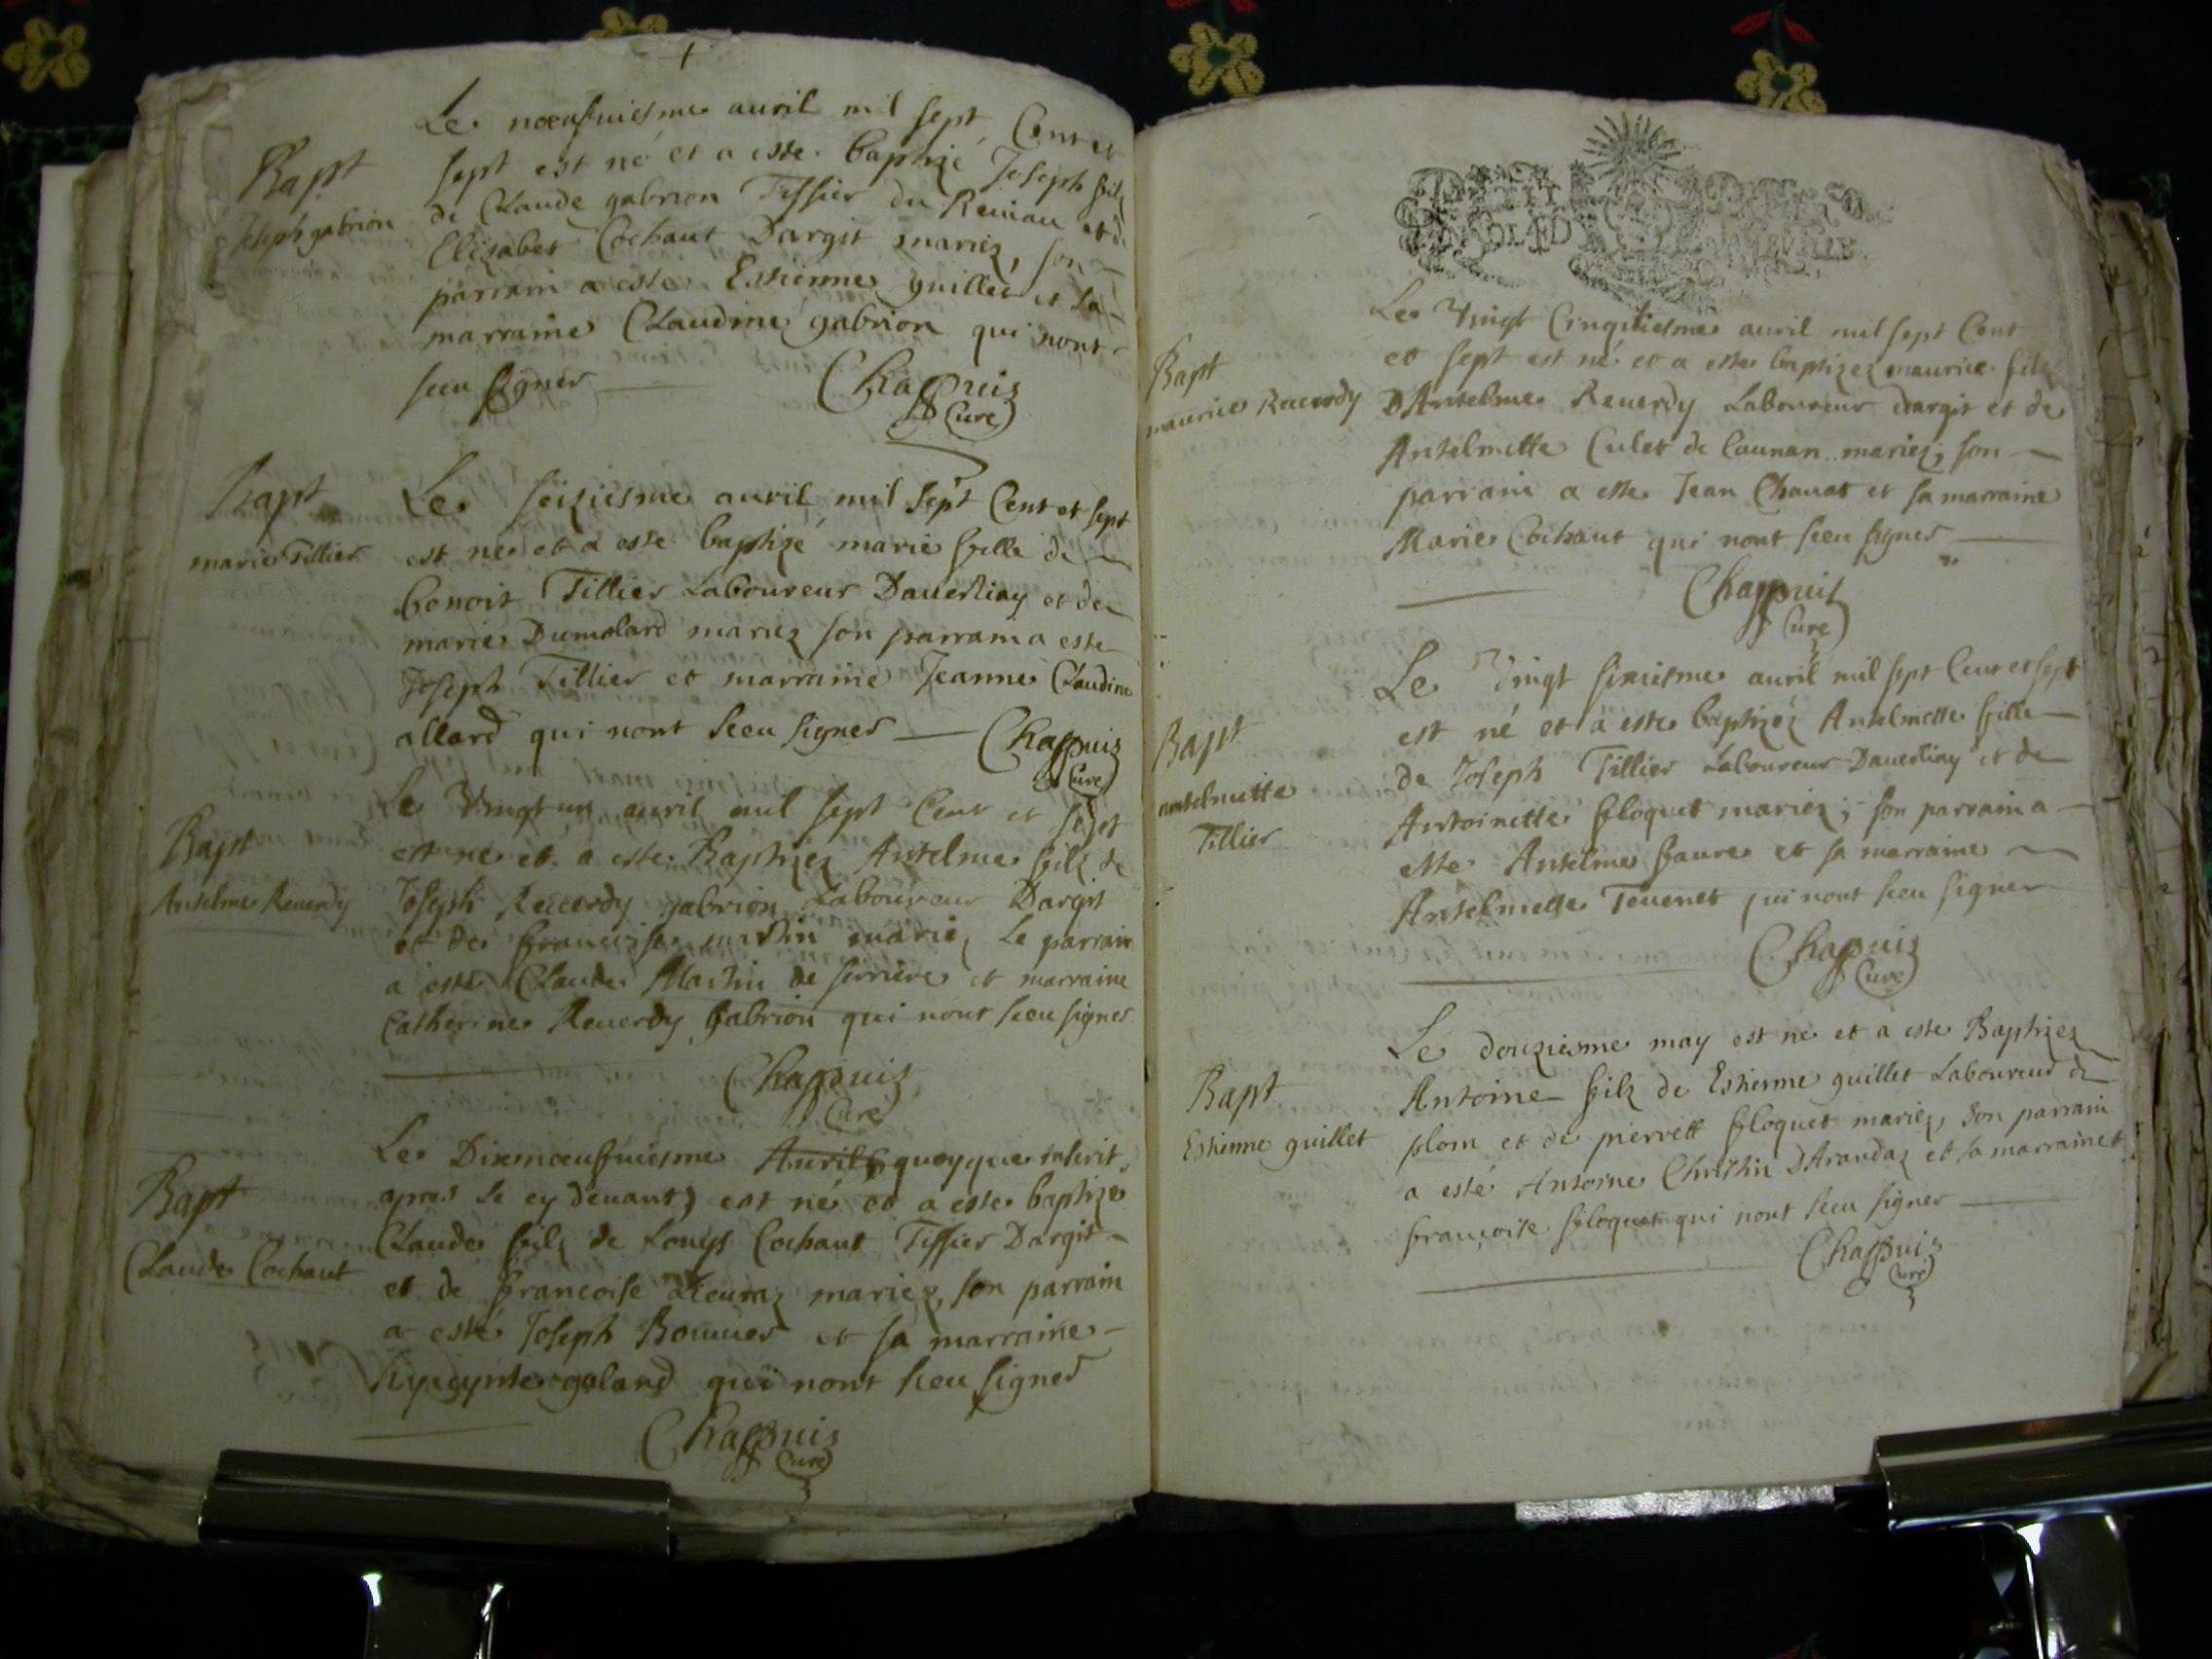 Le nœufuiesme auril mil sept Cent et
Bapt
sept est né et a esté baptizé Joseph filz
Joseph gabrion
de Claude gabrion Tissier du et de
Elizabet Cochaut Dargit mariez, son
parrain a este Estienne guillet et sa
marraine Claudine gabrion qui nont
sceu signer
Chappuis
Curé
Bapt
marie Tillier
Le seiziesme auril mil sept Cent et sept
est née et a esté baptizé marie fille de
benoit Tillier Laboureur Daverliay et de
marie Dumolard mariez son parrain a este
Joseph Tillier et marraine Jeanne Claudine
allard qui nont sceu signer Chappuis
Curé
Bapt
Anselme Reuerdy
Le Vingt un auril mil sept Cent et sept
est né et a este Baptizez Antelme filz de
Joseph Reuerdy gabrion Laboureur Dargit
et de francoise martin mariez Le parrain
a esté Claude Martin de serriere et marraine
Catherine Reuerdy gabrion qui nont sceu signer
Chappuis
Curé
Bapt
Claude Cochaut
Le Dixnœufuiesme Auril quoyque inscrit
apres le cy deuant, est né et a este baptize
Claude filz de Louys Cochaut Tissier Dargit
et de francoise mariez, son parrain
a esté Joseph Bouuier et sa marraine
galand qui nont sceu signer
Chappuis
Curé
Bapt
maurice Reuerdy
Le Vingt Cinquiesme auril mil sept Cent
et sept est né et a este baptizez maurice filz
D'Antelme Reuerdy Laboureur dargit et de
Antelmette Culet de Caunan mariez; son
parrain a este Jean Chauat et sa marraine
Marie Cochaut qui nont sceu signer
Chappuis
Curé
Bapt
antelmette
Tillier
Le Vingt sixiesme auril mil sept Cent et sept
est né et a este baptizéz Antelmette fille
de Joseph Tillier Laboureur Daverliay et de
Antoinette floquet mariez; son parrain a
este Antelme faure et sa marraine
Antelmette Teuenet qui nont sceu signer
Chappuis
Curé
Bapt
Estienne guillet
Le douziesme may est né et a este Baptizez
Antoine filz de Estienne guillet Laboureur de
plom et de pierrett floquet mariez, son parrain
a esté Antoine Christin D'Arandaz et sa marraine
francoise floquet qui nont sceu signer
Chappuis
Curé